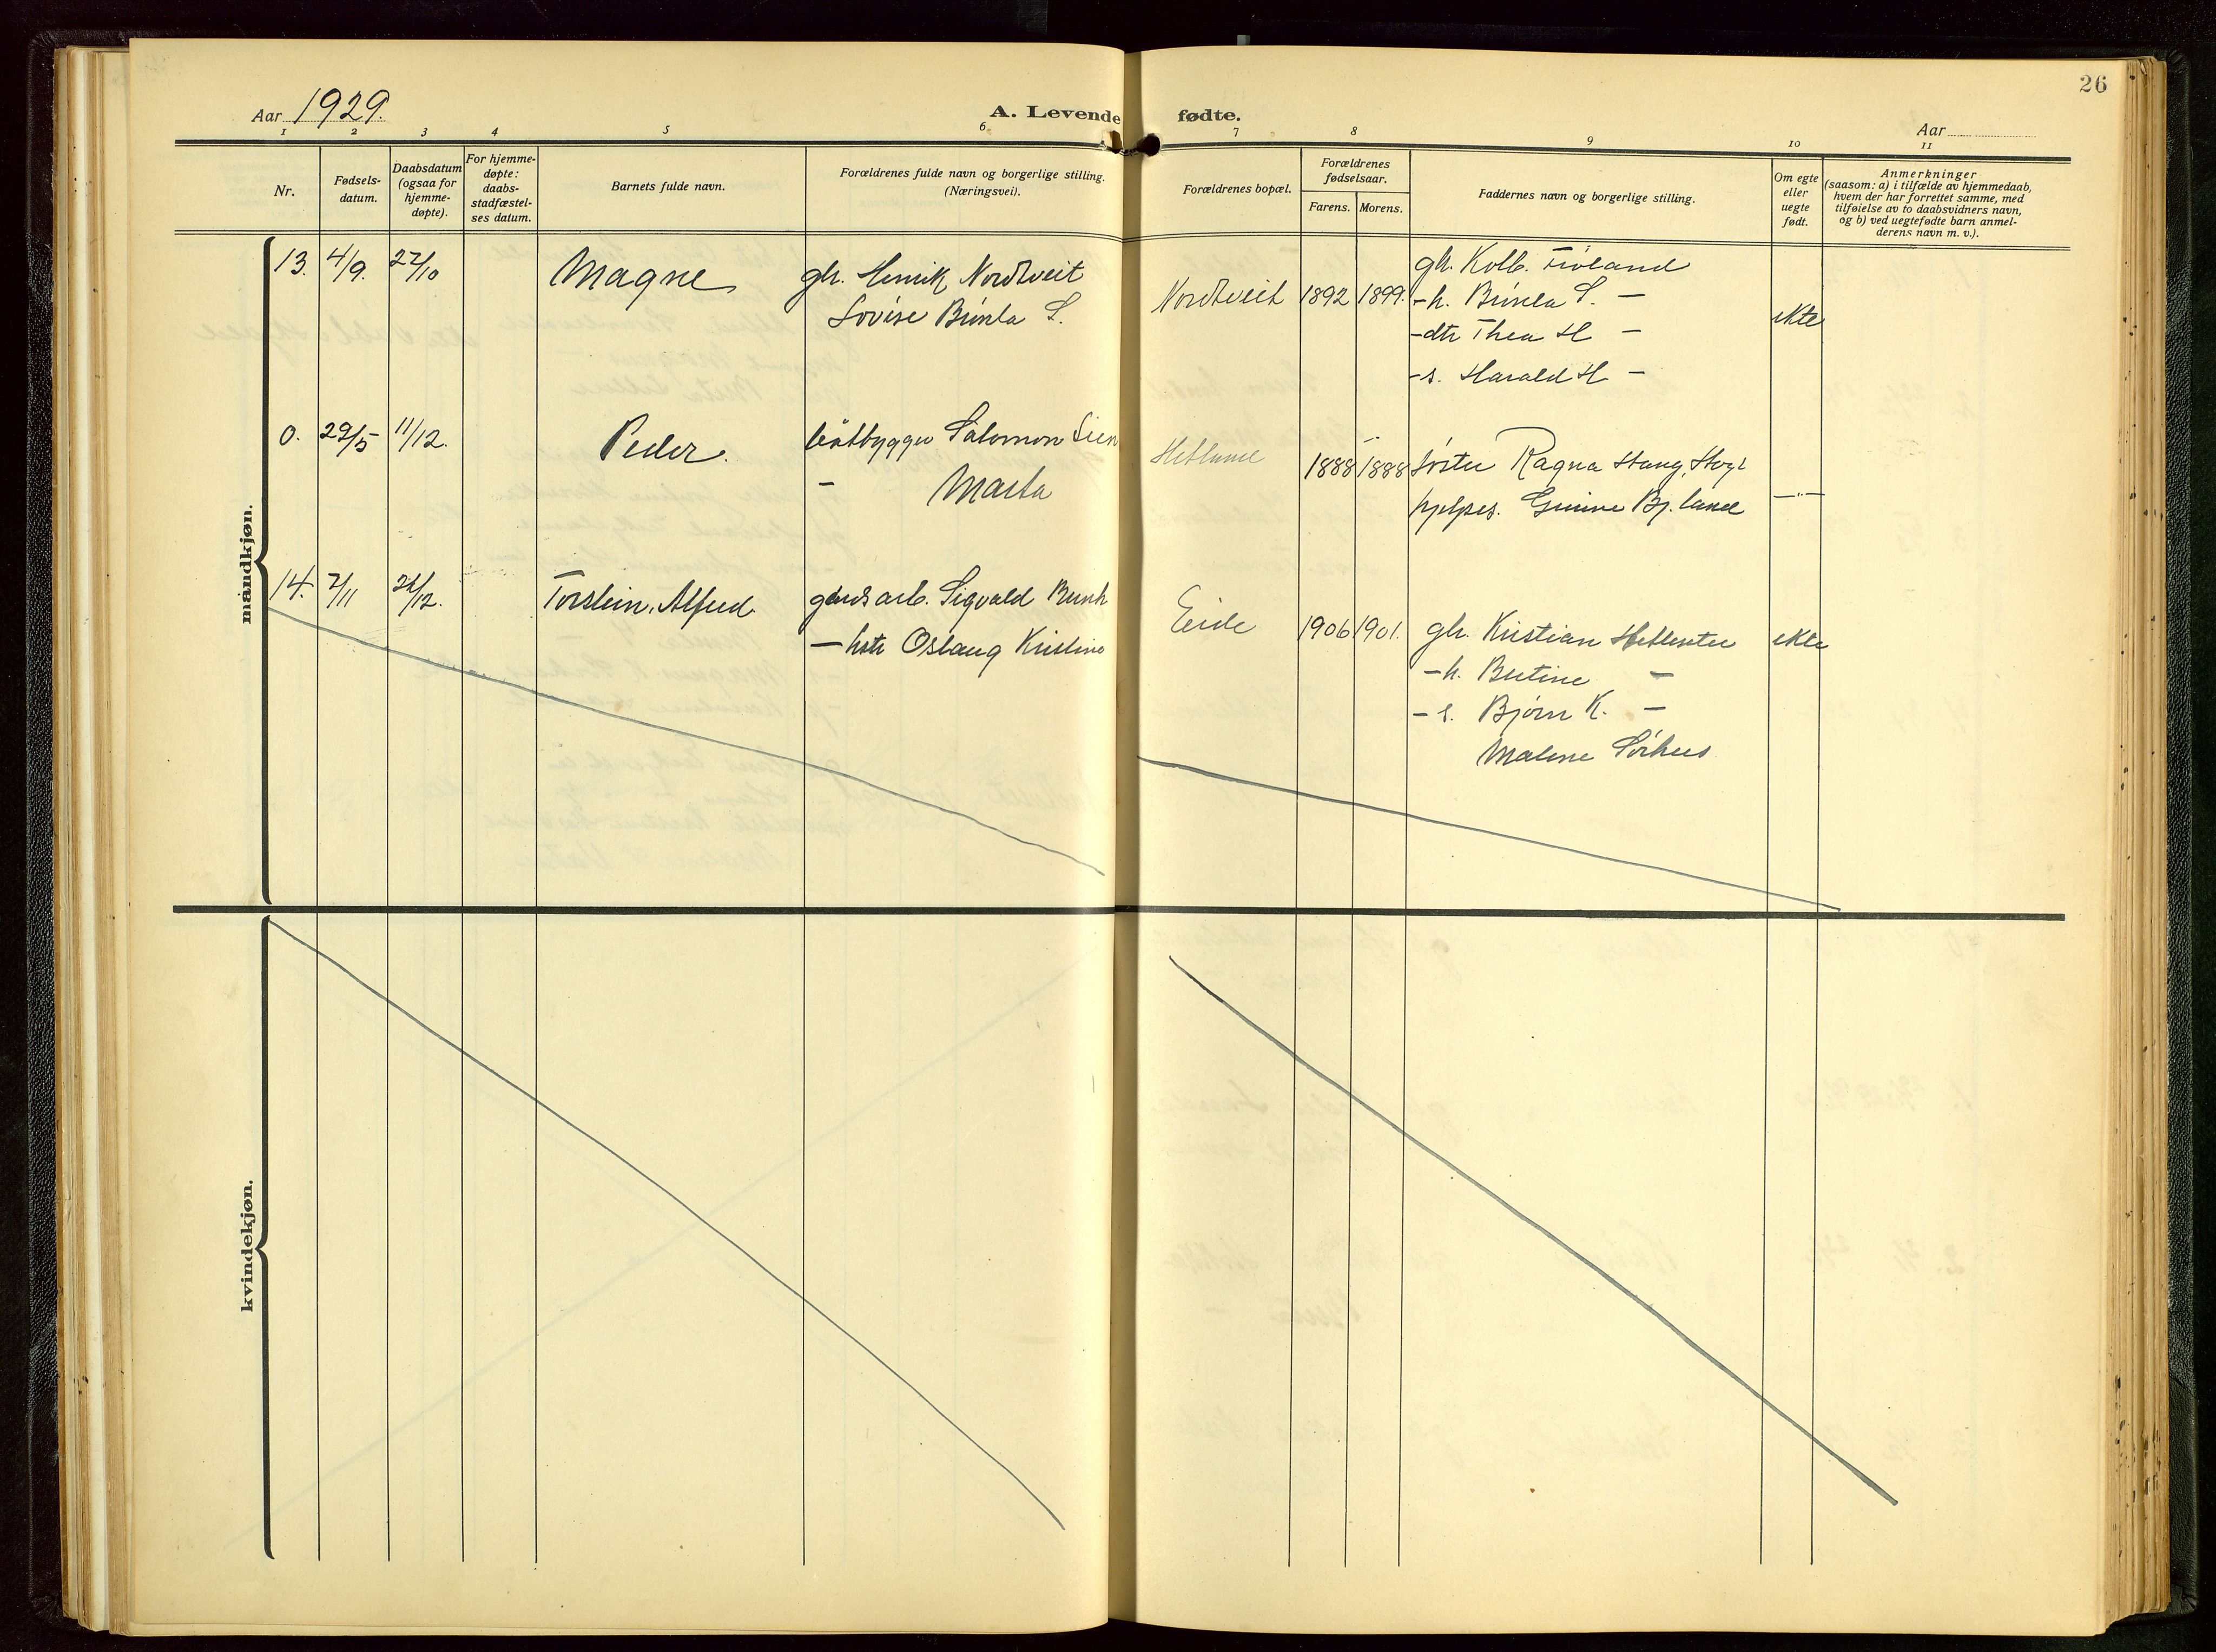 26
Aar 1929.
A. Levende fødte.
Aar
1 2 3 4 5 6 7 8 9 10 11
Nr.
Fødsels-
datum.
Daabsdatum
(ogsaa for
hjemme-
døpte).
For hjemme-
døpte:
daabs-
stadfæstel-
ses datum.
Barnets fulde navn.
Forældrenes fulde navn og borgerlige stilling.
(Næringsvei).
Forældrenes bopæl.
Forældrenes
fødselsaar.
Farens. Morens.
Faddernes navn og borgerlige stilling.
Om egte
eller
uegte
født.
Anmerkninger
(saasom: a) i tilfælde av hjemmedaab,
hvem der har forrettet samme, med
tilføielse av to daabsvidners navn,
og b) ved uegtefødte barn anmel-
derens navn m. v.).
mandkjøn.
13. 4/9. 27/10 Magne
gh. Henrik Nordtveit
Lovise S.
Nordtveit 1892 1899.
gh. Kolb.
-h. S. -
-dtr Thea H -
-s. Harald H -
ekte
0. 29/5 11/12. Peder.
båtbygger Salomon Lien
- Marta
1888 1888
Ragna
hjelpes.
-"-
14. 7/11 /12. Torstein Alfred
gardsarb. Sigvald
- hstr Oslaug Kristine
Eide 1906 1901.
gh. Kristian
-h. Bertine -
-s. Bjørn K. -
Malene Sørhus
ekte
kvindekjøn.